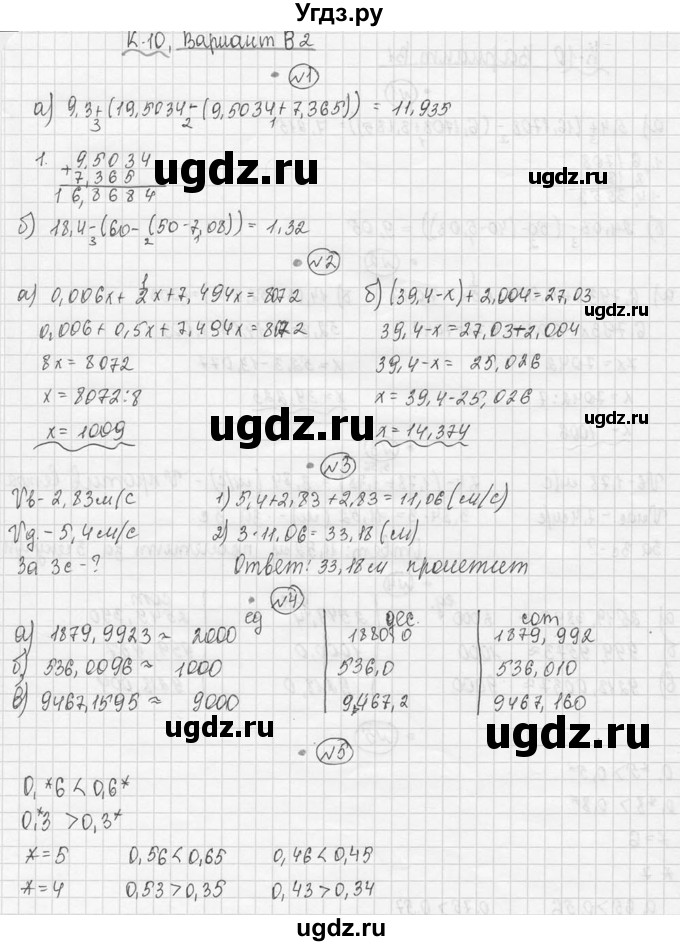 Угдз.ру
К-10, Вариант В2
№1
а) 9,3+(19,5034-(9,5034+7,365)) = 11,935
3 2 1
1. 9,5034
+7,365
16,8684
б) 18,4-(60-(50-7,08)) = 1,32
3 2 1
№2
а) 0,006x+ 1/2x+7,494x=8072
0,006+0,5x+7,494x=8072
8x=8072
x=8072:8
x=1009
б) (39,4-x)+2,004=27,03
39,4-x=27,03+2,004
39,4-x= 25,026
x=39,4-25,026
x=14,374
№3
Vв-2,83м/с
Vд.-5,4м/с
За 3с-?
1) 5,4+2,83+2,83=11,06(м/с)
2) 3·11.06=33,18(м)
Ответ: 33,18м пролетит
№4
ед дес. сот.
а) 1879,9923≈ 2000 1880,0 1879,992
б) 536,0096≈ 1000 536,0 536,010
в) 9467,1595≈ 9000 9467,2 9467,160
№5
0,*6<0,6*
0,*3 >0,3*
*=5 0,56<0,65 0,46<0,45
*=4 0,53>0,35 0,43>0,34
ugdz.ru
ugdz.ru
ugdz.ru
ugdz.ru
ugdz.ru
ugdz.ru
ugdz.ru
ugdz.ru
ugdz.ru